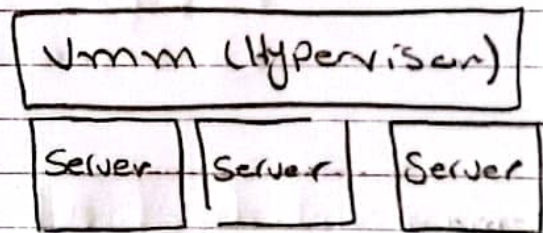 Vmm (Hypervisor)
Server Server Server